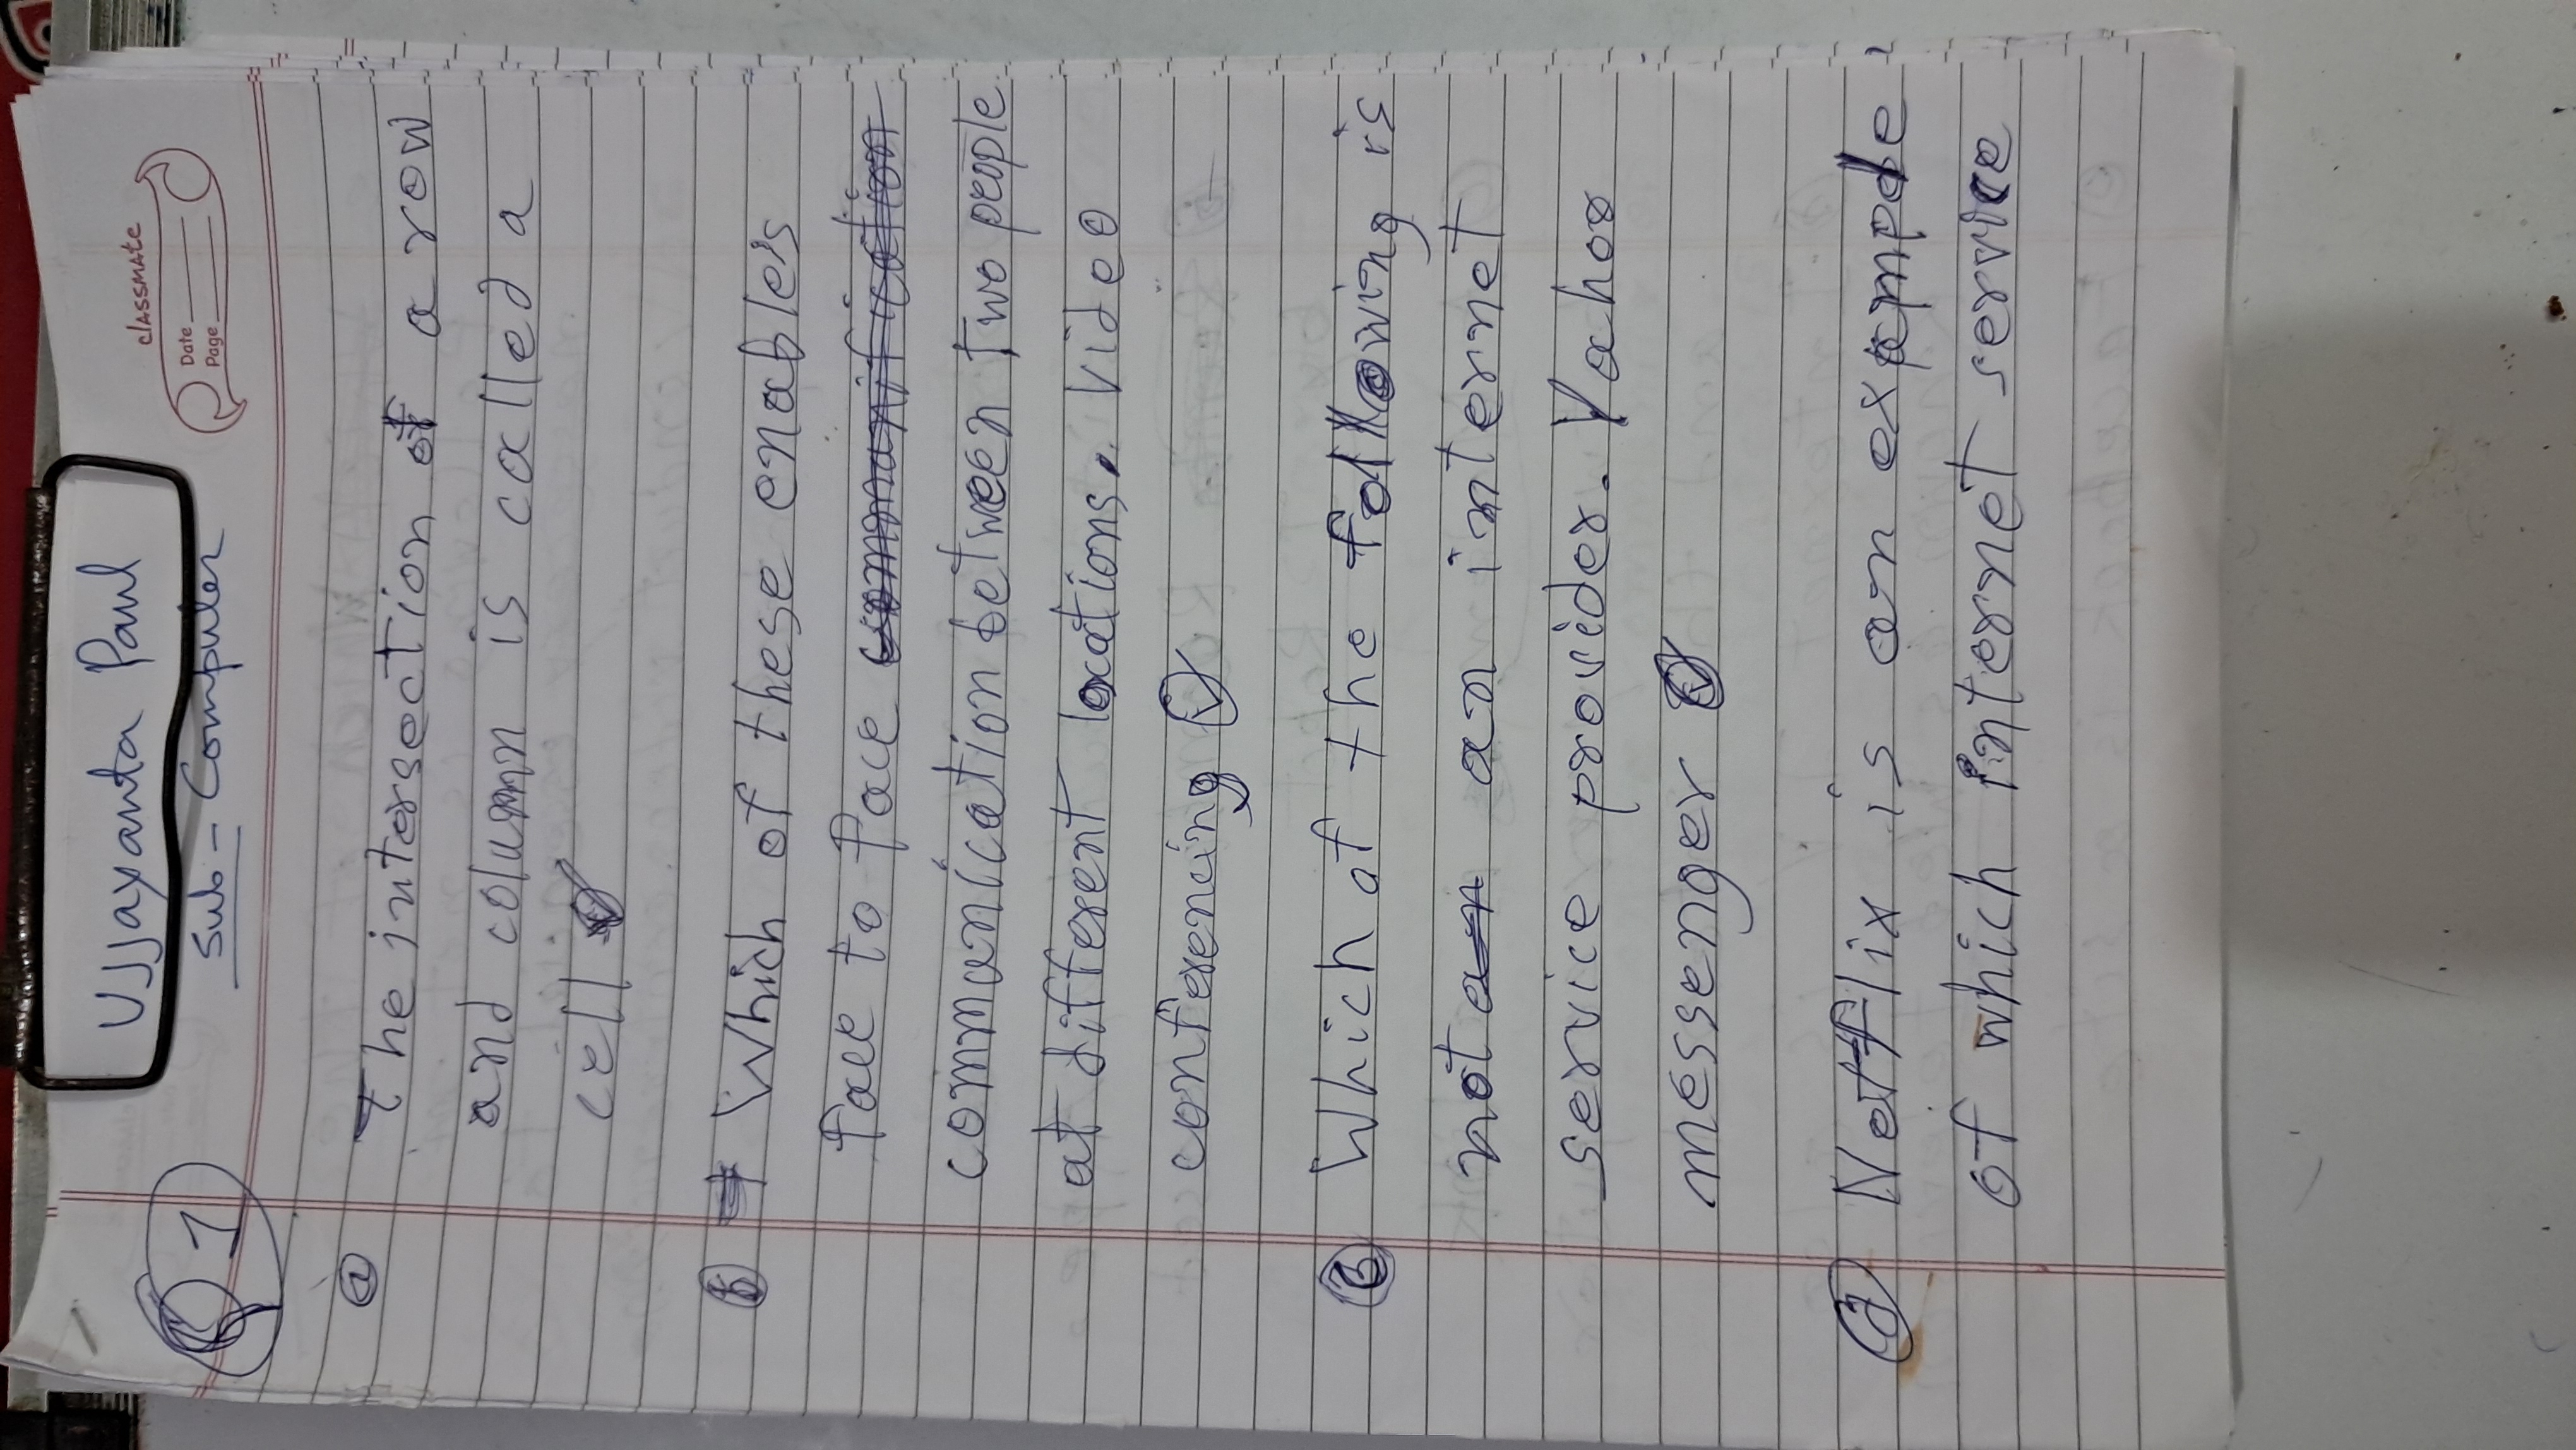 Ujjayanta Paul
classmate
Date
Page
Sub - Computer
Q 1
a The intersection of a row
and column is called a
cell
b Which of these enables
face to face communification
communication between two people
at different locations. Video
conferencing
c Which of the following is
not an an internet
service provider. Yahoo
messenger
d Netflix is an example
of which internet service